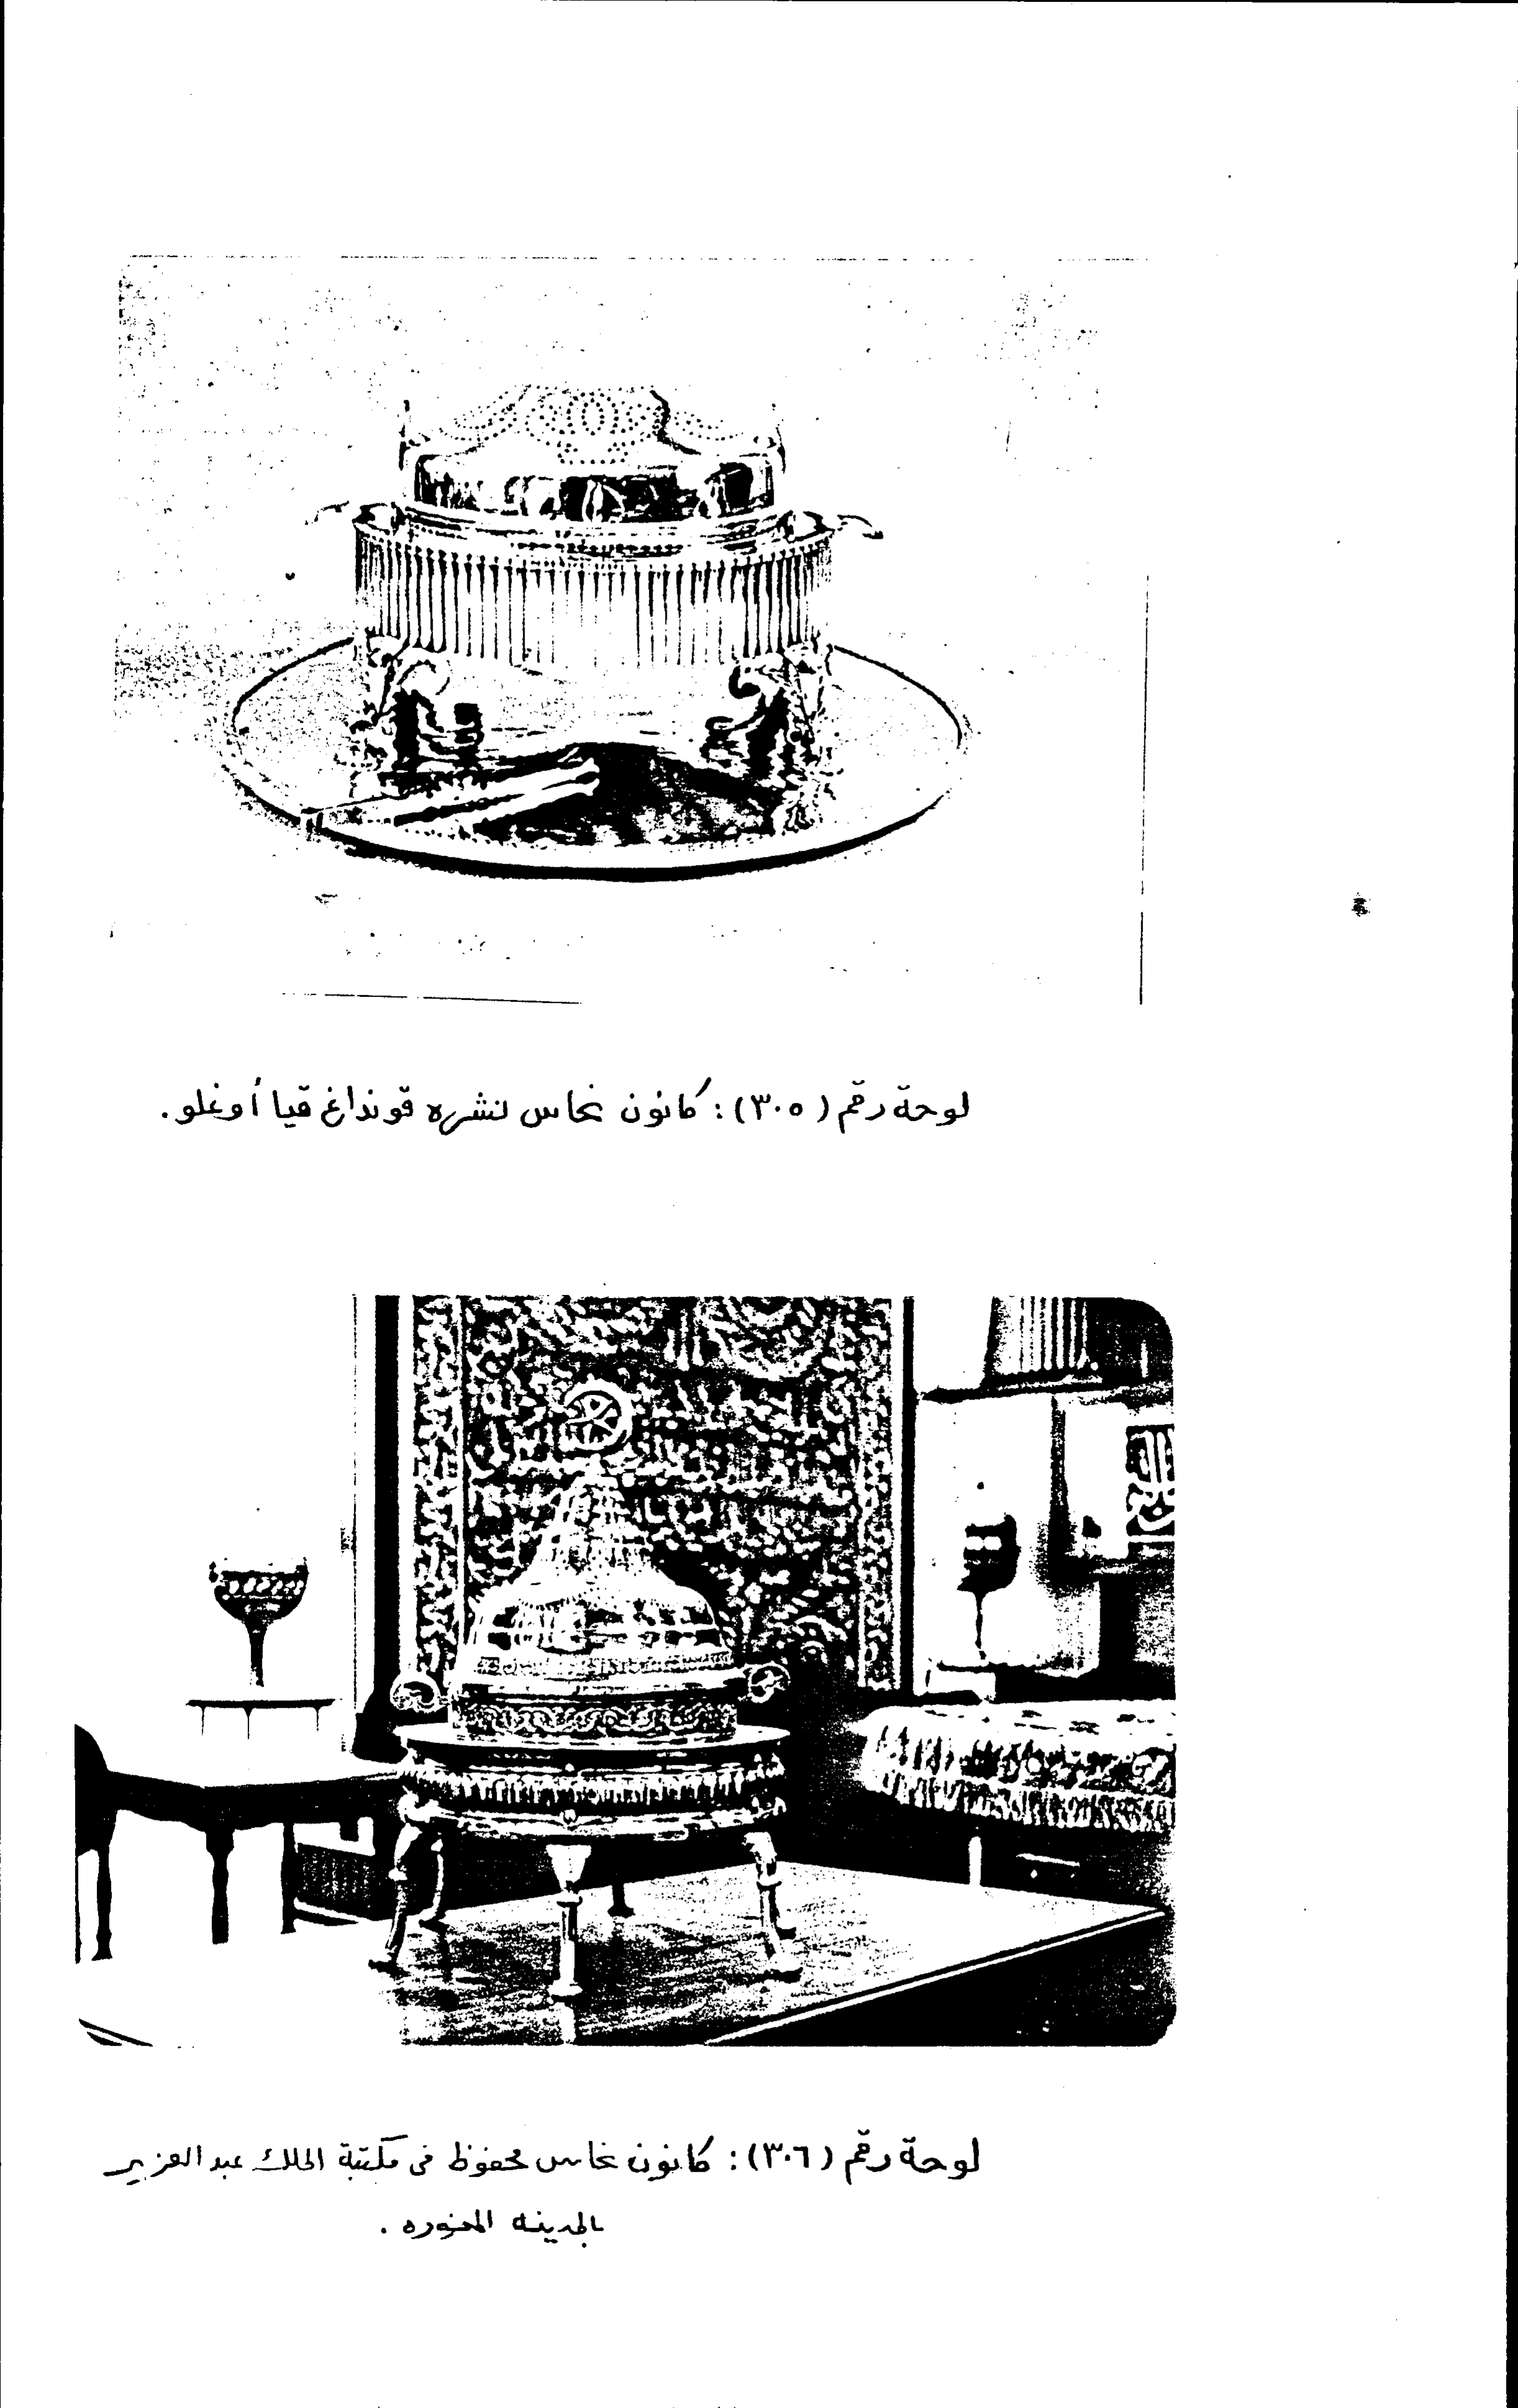 لوحة رقم (٣٠٥): كانون نحاس نشره قونداغ قيا أوغلو.
لوحة رقم (٣٠٦): كانون نحاس محفوظ فى مكتبة الملك عبد العزيز
بالمدينه المنوره .